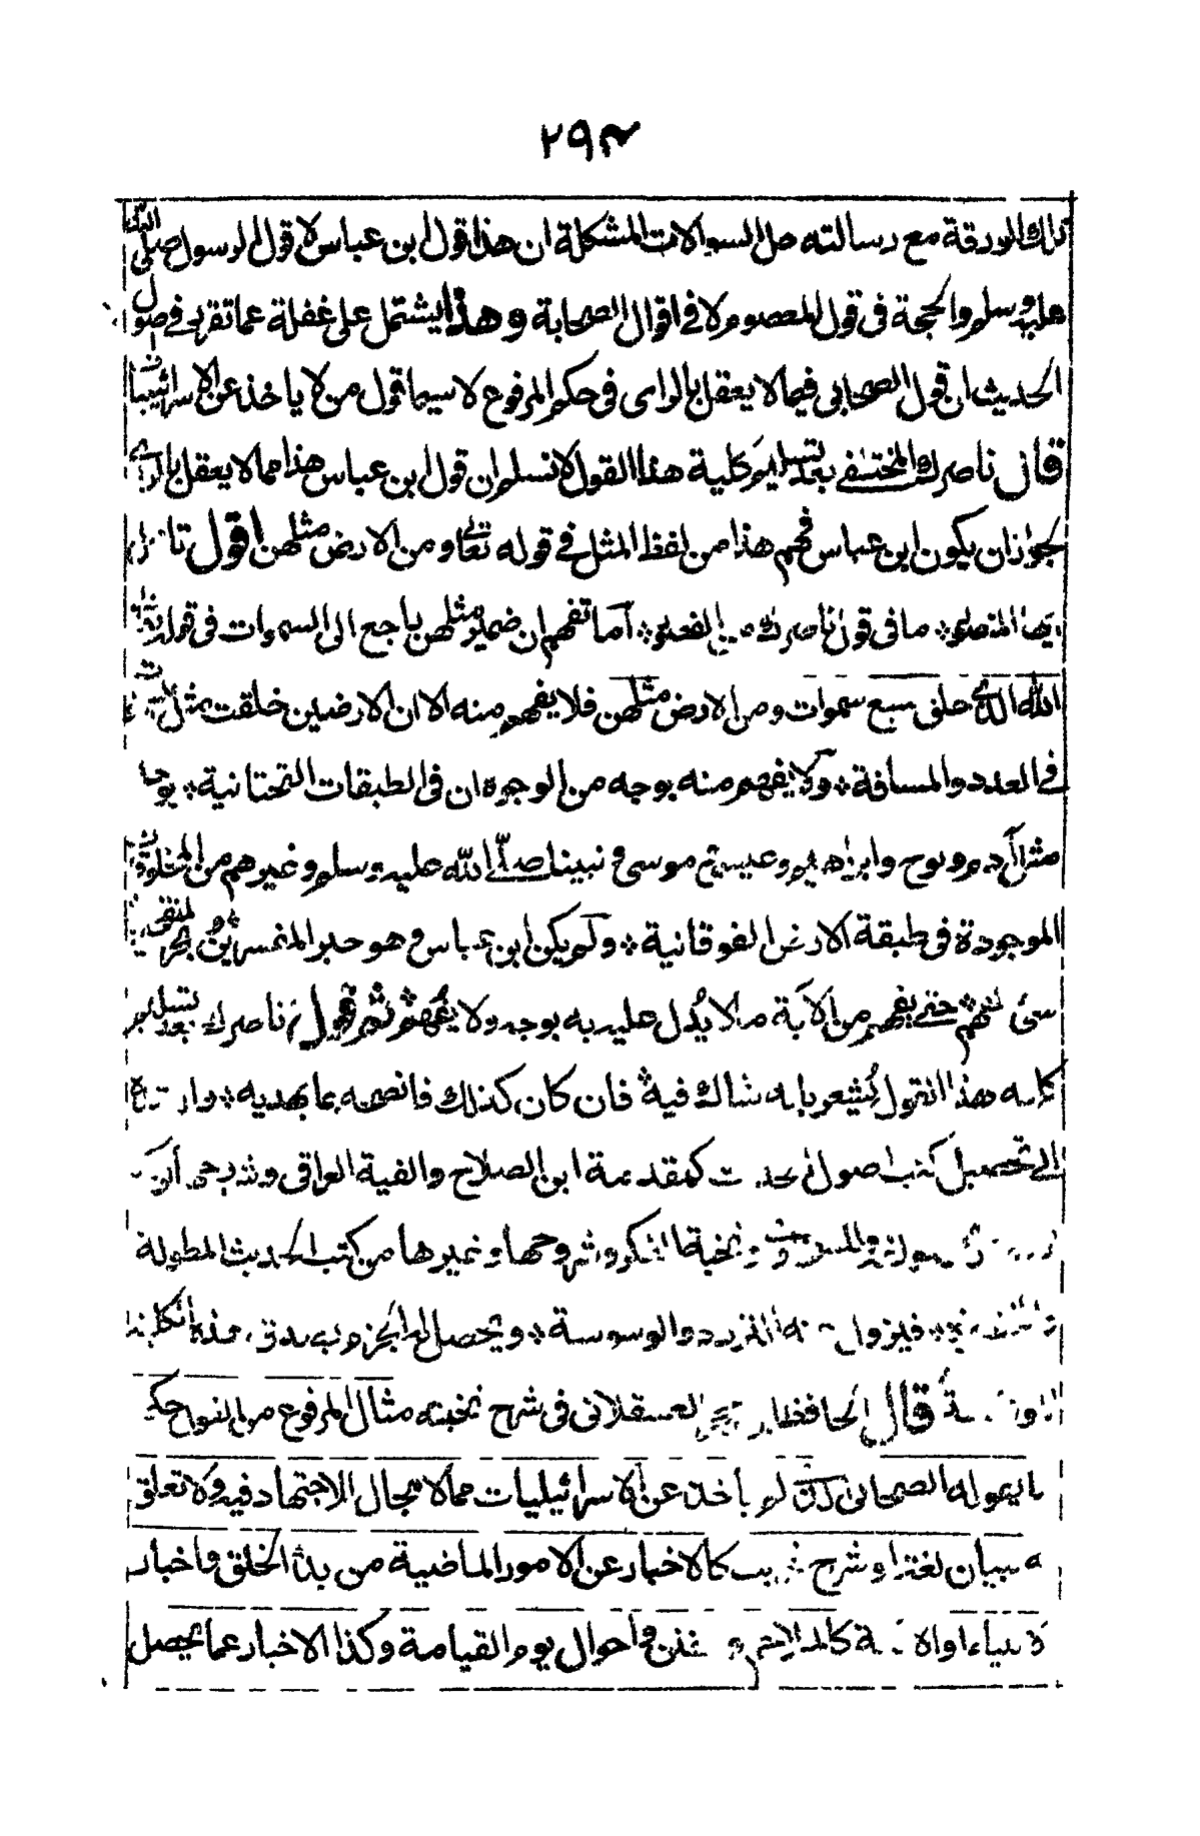 ٢٩٣
تلك الورقة مع رسالته حل السوالات المشكلة ان هذا قول ابن عباس لا قول الرسول صلى الله
عليه وسلم والحجة فى قول المعصوم لا فى اقوال الصحابة وهذا يشتمل على غفلة عما تقرر فى اصول
الحديث ان قول الصحابى فيما لا يعقل بالراى فى حكم المرفوع لا سيما قول من لا ياخذ عن الاسرائيليات
قال ناصرك المختفى بعد تسليم كلية هذا القول لا نسلم ان قول ابن عباس هذا مما لا يعقل بالراى
لجواز ان يكون ابن عباس فهم هذا من لفظ المثل فى قوله تعالى ومن الارض مثلهن اقول
ايها المنصور ما فى قول ناصرك من الفتور اما تفهم ان ضمير مثلهن راجع الى السموات فى قوله تعالى
الله الذى خلق سبع سموات ومن الارض مثلهن فلا يفهم منه الا ان الارضين خلقت مثل السموات
فى العدد والمسافة ولا يفهم منه بوجه من الوجوه ان فى الطبقات التحتانية يوجد
مثل آدم ونوح وابراهيم وعيسى وموسى ونبينا صلى الله عليه وسلم وغيرهم من المخلوقات
الموجودة فى طبقة الارض الفوقانية ولم يكن ابن عباس وهو حبر المفسرين وبحر
حتى يفهم من الآية ما لا يدل عليه به بوجه ولا ثم قول ناصرك بعد تسليم
كلية هذا القول يشعر بانه شاك فيه فان كان كذلك فانصحه بما يهديه
الى تحصيل كتب اصول كمقدمة ابن الصلاح والفية العراقى
ونخبة الفكر وشروحها وغيرها من كتب الحديث المطولة
فيزول التردد والوسوسة ويحصل له الجزم بصدق هذه الكلية
قال الحافظ ابن حجر العسقلانى فى شرح نخبته مثال المرفوع من القول حكما
ما يقوله الصحابى الذى لم ياخذ عن الاسرائيليات مما لا مجال للاجتهاد فيه ولا تعلق
له ببيان لغة او شرح غريب كالاخبار عن الامور الماضية من بدأ الخلق واخبار
الانبياء او الآتية كالملاحم والفتن واحوال يوم القيامة وكذا الاخبار عما يحصل